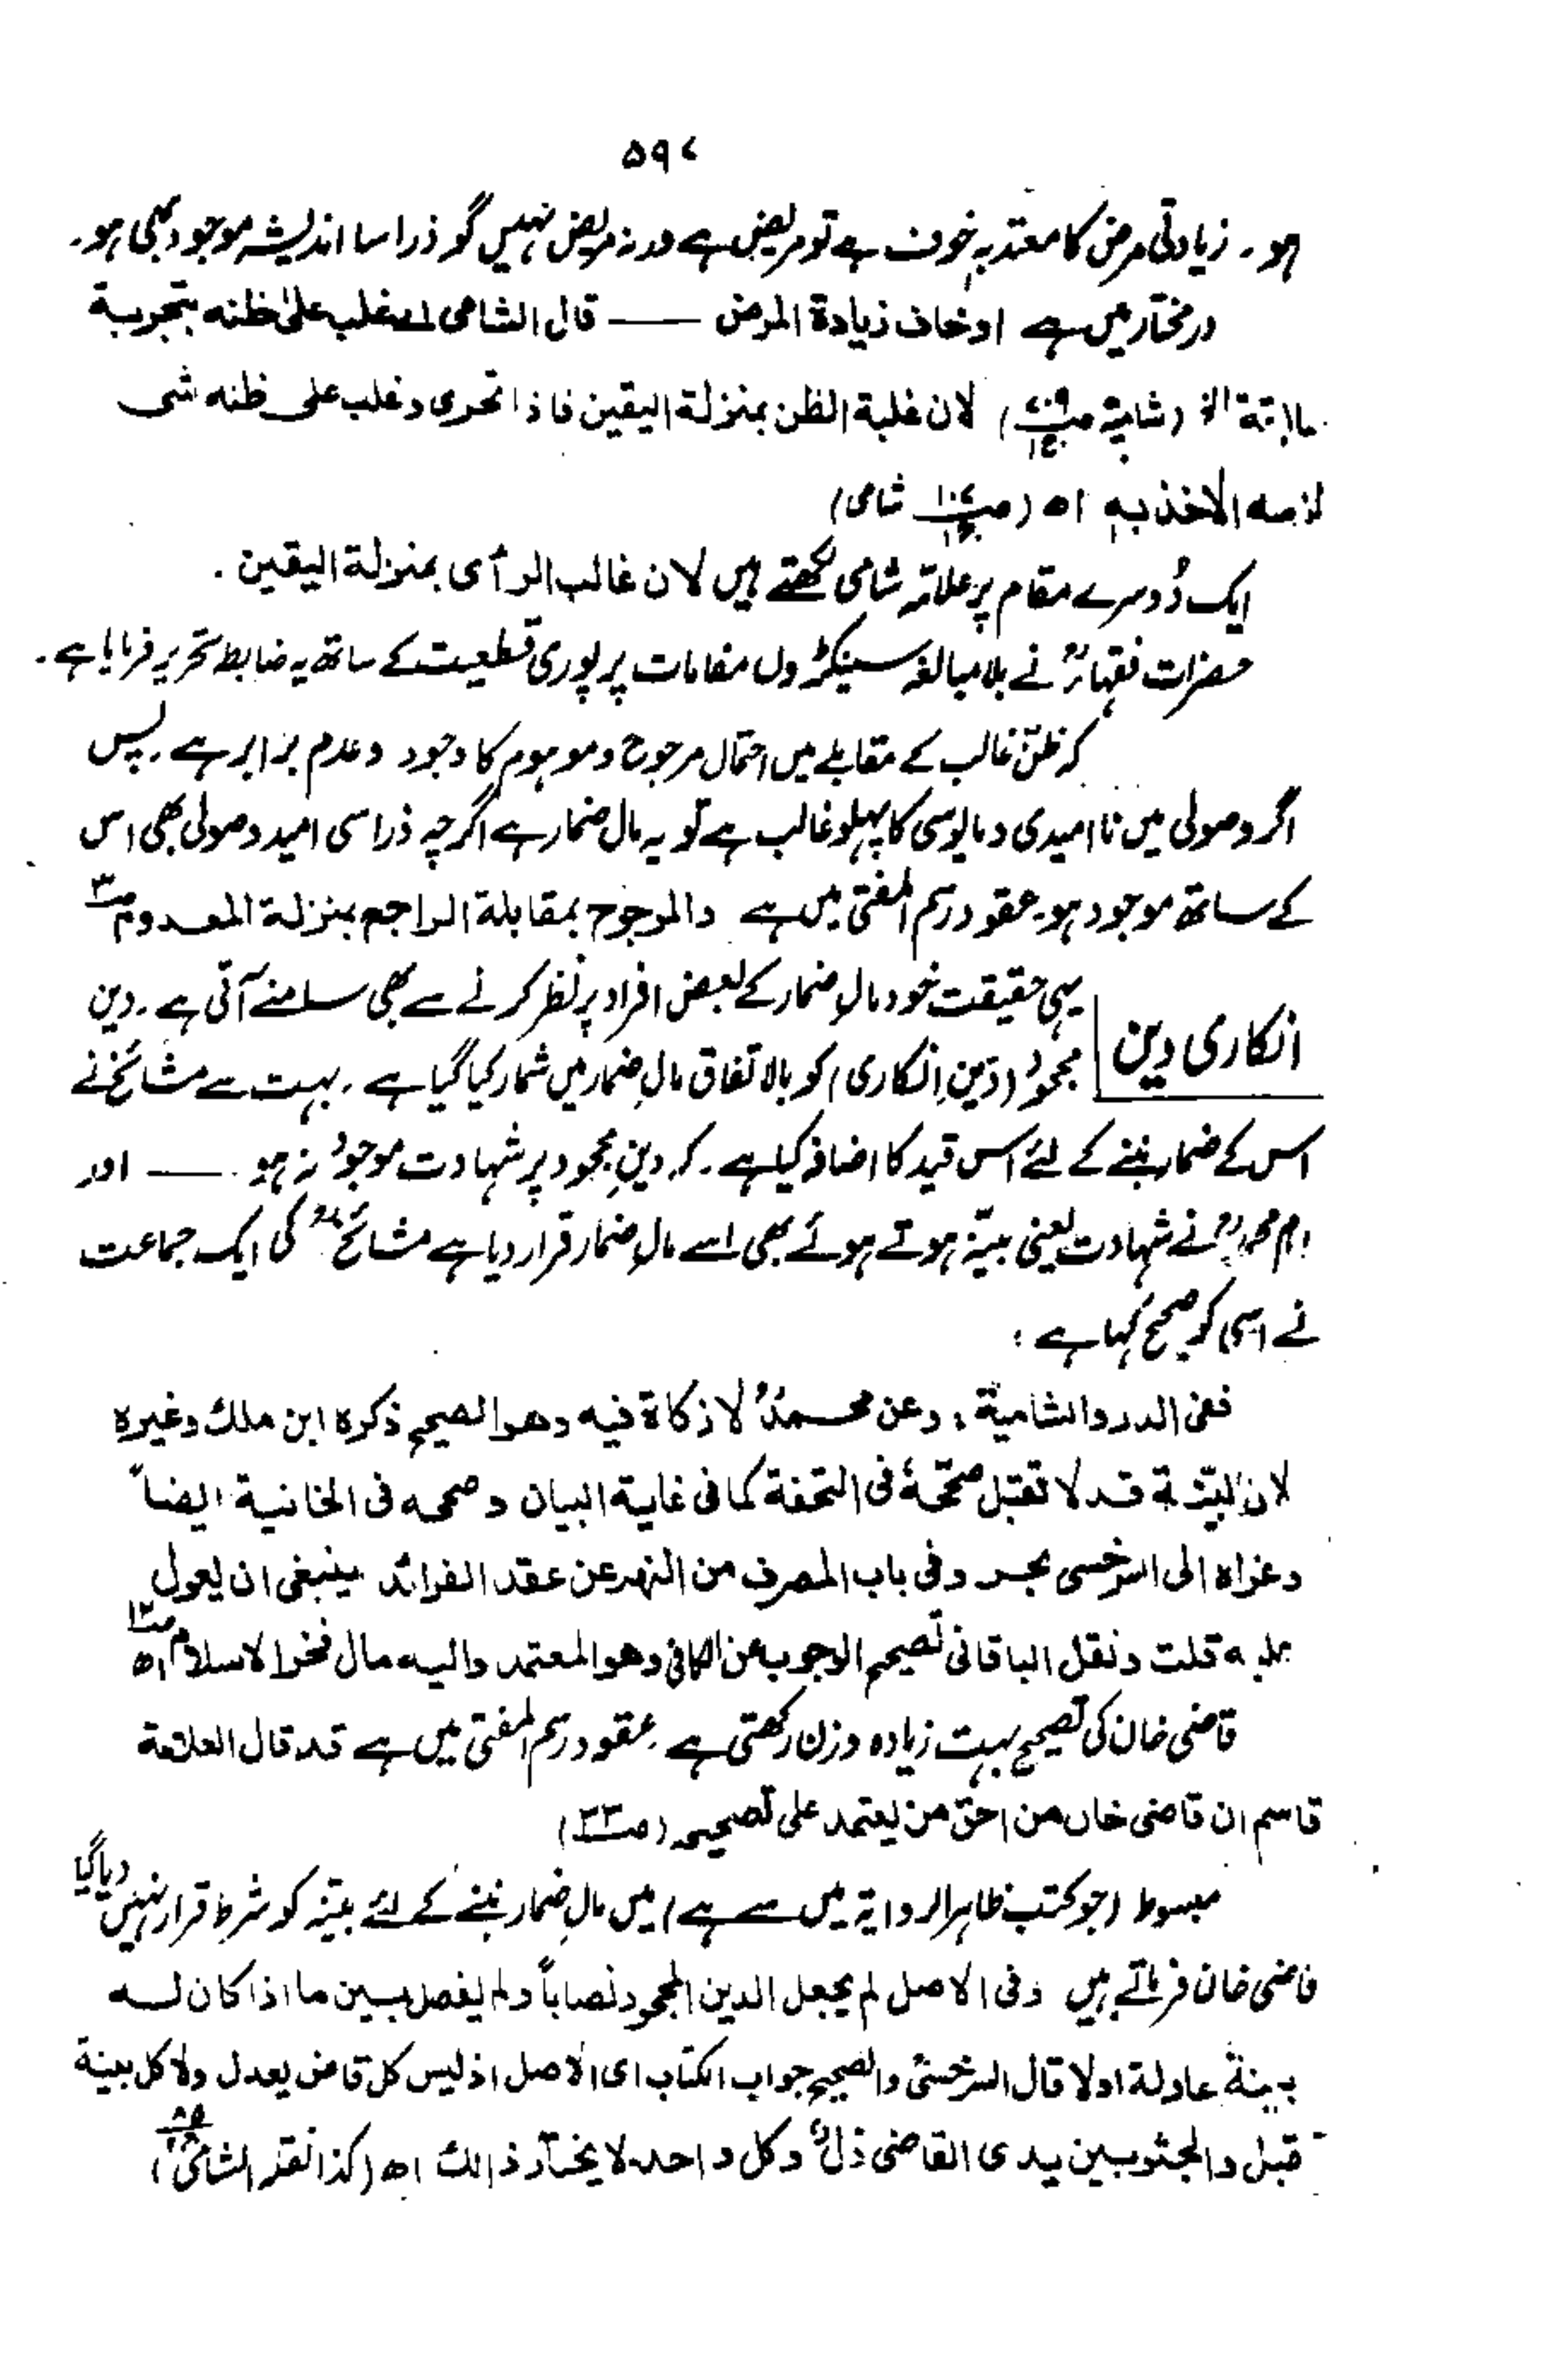 ۵۹۷
ہو۔ زیادتی مرض کا معتد بہ خوف ہے تو مریض ہے ورنہ مریض نہیں گو ذرا سا اندیشہ موجود بھی ہو۔
درمختار میں ہے اوخاف زیادة المرض —— قال الشامی اے غلب علیٰ ظنہ بتجربة
سابقة الخ (شامیہ) لان غلبة الظن بمنزلة الیقین فاذا تحری وغلب علی ظنہ شی
لزمہ الاخذ بہ اھ (شامی)
ایک دُوسرے مقام پر علامہ شامی لکھتے ہیں لان غالب الرأی بمنزلة الیقین۔
حضرات فقہاءؒ نے بلا مبالغہ سینکڑوں مقامات پر پوری قطعیت کے ساتھ یہ ضابطہ تحریر فرمایا ہے۔
کہ ظنّ غالب کے مقابلے میں احتمال مرجوح و موہوم کا وجود وعدم برابر ہے۔ پس
اگر وصولی میں ناامیدی و مایوسی کا پہلو غالب ہے تو یہ مال ضمار ہے اگرچہ ذرا سی امید وصولی بھی اس
کے ساتھ موجود ہو۔ عقود رسم المفتی میں ہے والمرجوح بمقابلة الراجح بمنزلة المعدوم
انکاری دین
یہی حقیقت خود مالِ ضمار کے بعض افراد پر نظر کرنے سے بھی سامنے آتی ہے۔ دین
مجحود (دَینِ انکاری) کو بالاتفاق مالِ ضمار میں شمار کیا گیا ہے۔ بہت سے مشائخ نے
اس کے ضمار بننے کے لئے اس قید کا اضافہ کیا ہے۔ کہ دینِ مجحود پر شہادت موجود نہ ہو —— اور
امام محمدؒ نے شہادت یعنی بیّنہ ہوتے ہوئے بھی اسے مالِ ضمار قرار دیا ہے مشائخؒ کی ایک جماعت
نے اسی کو صحیح کہا ہے؛
ففی الدر والشامیة؛ وعن محمدؒ لا زکاة فیہ وھو الصحیح ذکرہ ابن ملک وغیرہ
لان البیّنة قد لا تقبل صححہٗ فی التحفة کما فی غایة البیان وصححہ فی الخانیة ایضاً
وعزاہ الی السرخسی بحر وفی باب المصرف من النھر عن عقد الفرائد ینبغی ان یعول
علیہ قلت ونقل الباقانی تصحیح الوجوب عن الکافی وھو المعتمد والیہ مال فخر الاسلام اھ
قاضی خان کی تصحیح بہت زیادہ وزن رکھتی ہے۔ عقود رسم المفتی میں ہے قد قال العلامة
قاسم ان قاضی خاں من احق من یعتمد علی تصحیحہ
مبسوط (جو کتب ظاہر الروایة میں سے ہے) میں مالِ ضمار بننے کے لئے بیّنہ کو شرط قرار نہیں دیا گیا
قاضی خان فرماتے ہیں وفی الاصل لم یجعل الدین المجحود نصاباً ولم یفصل بین ما اذا کان لہ
بینة عادلة اولا قال السرخسیؒ والصحیح جواب الکتاب ای الاصل اذ لیس کل قاض یعدل ولا کل بینة
تقبل والجثوبین یدی القاضی ذلٌ وکل واحد لا یختار ذالک اھ (کذا نقلہ الشامیؒ)